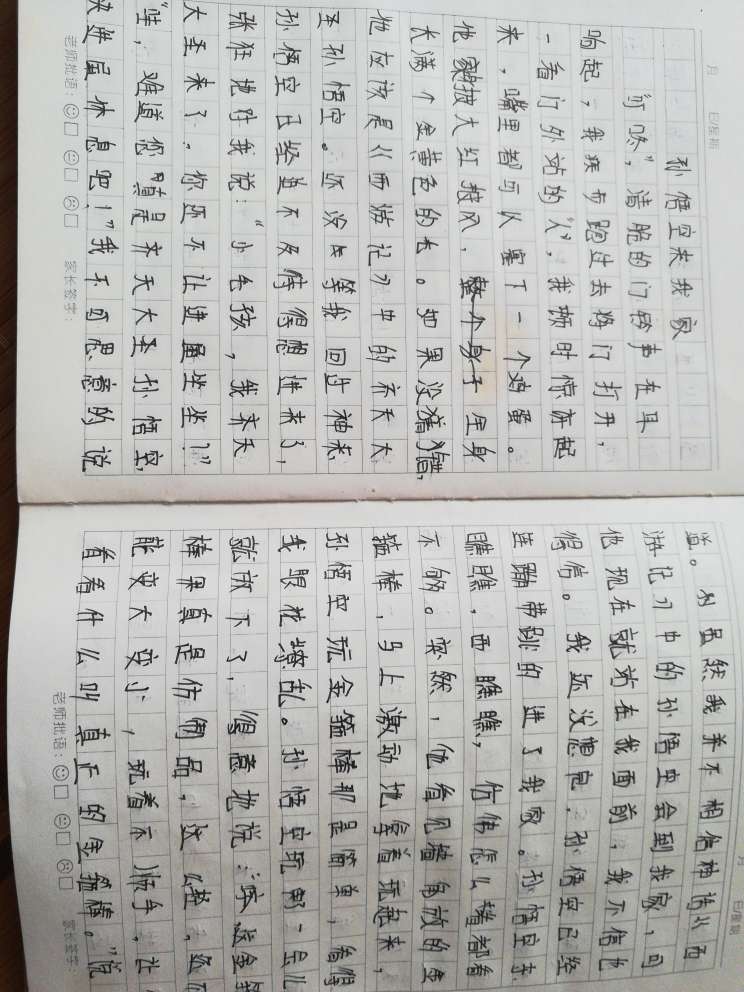 月 日 星期
孙悟空来我家
“叮咚”，清脆的门铃声在耳
响起，我疾步跑过去将门打开，
一看门外站的“人”，我顿时惊奇起
来，嘴里都可以塞下一个鸡蛋。
他身披大红披风，整个身子全身
长满个金黄色的毛。如果没猜错，
他应该是《西游记》中的齐天大
圣孙悟空。还没等我回过神来，
孙悟空已经迫不及待得想进来了，
张狂地对我说：“小毛孩，我齐天
大圣来了。你还不让进屋坐坐？”
“哇，难道您真是齐天大圣孙悟空，
快进屋休息吧！”我不可思意的说
老师批语： 家长签字：
月 日 星期
道。虽然我并不相信神话《西
游记》中的孙悟空会到我家，可
他现在就站在我面前，我不信也
得信。我还没想完，孙悟空已经
连蹦带跳的进了我家。孙悟空东
瞧瞧，西瞧瞧，仿佛怎么瞧都看
不够。突然，他看见墙角放的金
箍棒，马上激动地拿着玩起来，
孙悟空玩金箍棒那是简单，看得
我眼花缭乱。孙悟空玩那一会儿
就放下了，得意地说：“这金箍
棒果真是仿制品，这么轻，还不
能变大变小，玩着不顺手，让你
看看什么叫真正的金箍棒。”说
老师批语： 家长签字：